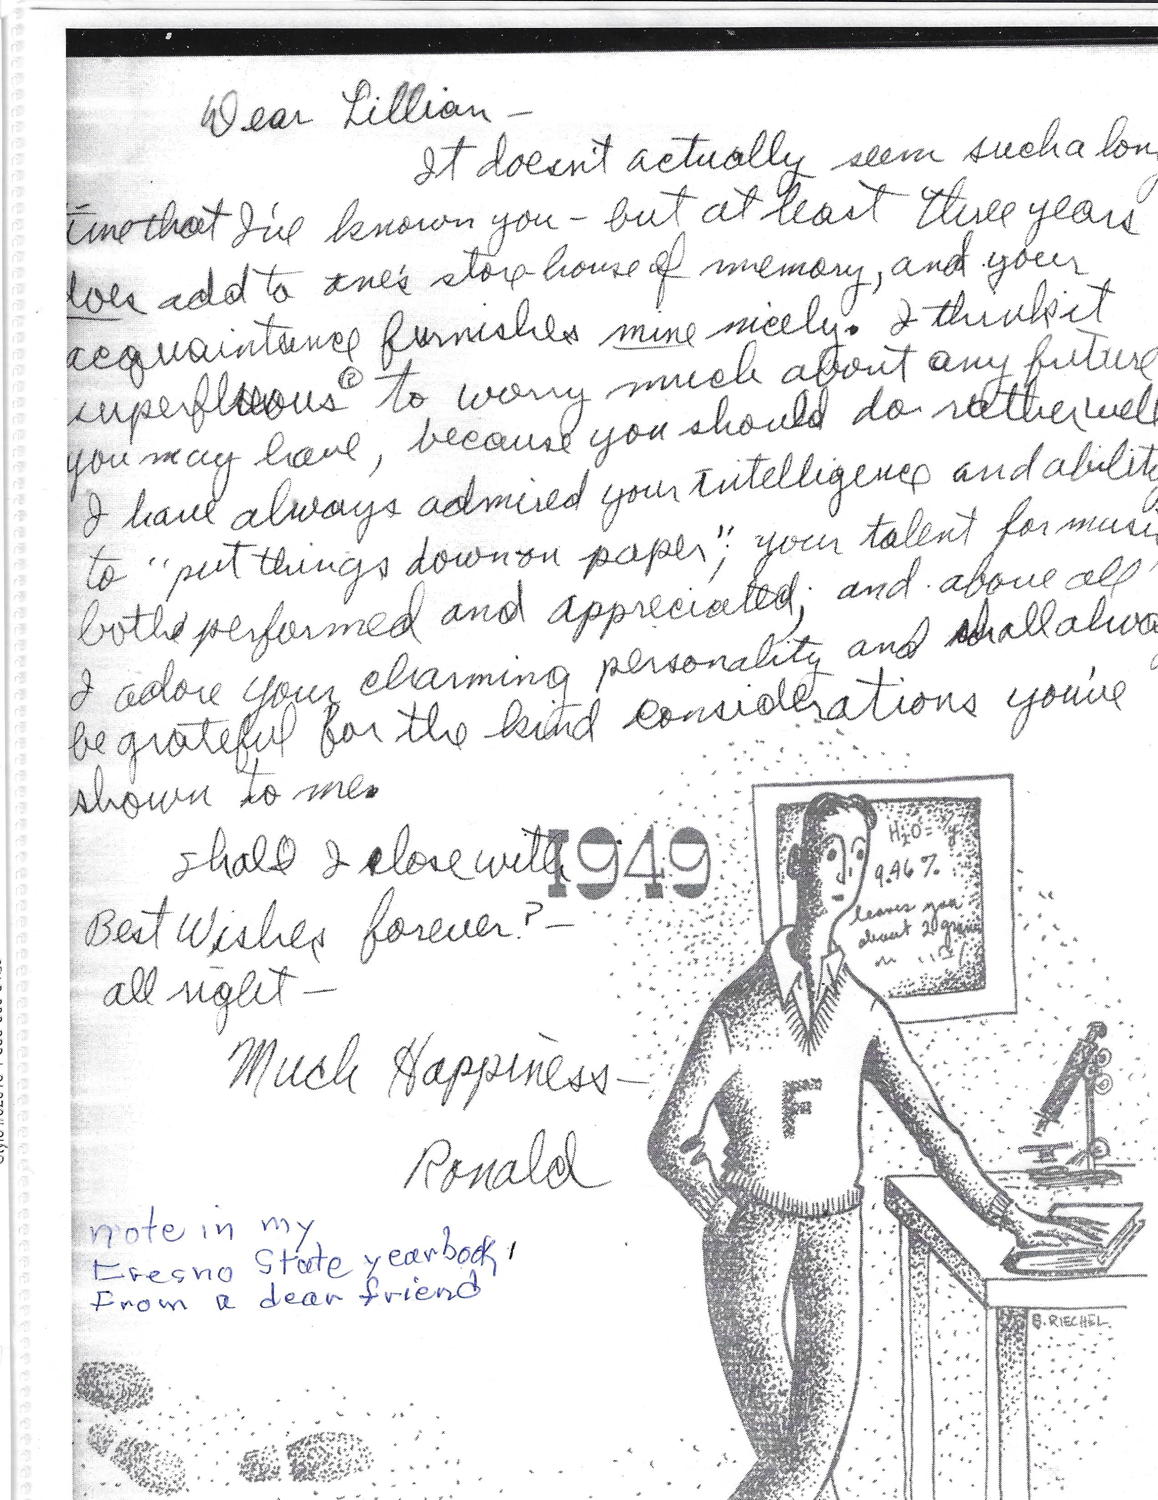 Dear Lillian –
It doesn't actually seem such a long
time that I've known you – but at least three years
does add to one's store-house of memory, and your
acquaintance furnishes mine nicely. I think it
superfluous (?) to worry much about any future
you may have, because you should do rather well
I have always admired your intelligence and ability
to "put things down on paper"; your talent for music
both performed and appreciated; and above all
I adore your charming personality and shall always
be grateful for the kind considerations you've
shown to me.
Shall I close with
Best Wishes forever? –
all right –
Much Happiness –
Ronald
1949
H2O =
9.46 %
leaves you
about 20 grams
F
B. RIECHEL
note in my
Fresno State yearbook,
From a dear friend